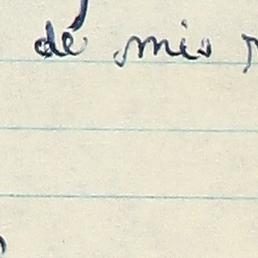 dé mis